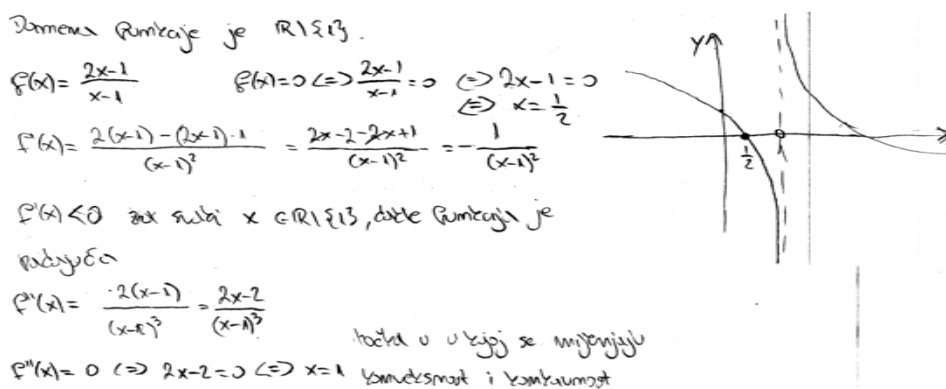 Domena funkcije je ℝ\{1}.
f(x) = \frac{2x-1}{x-1}   f(x)=0 <=> \frac{2x-1}{x-1} = 0 <=> 2x-1=0
<=> x = \frac{1}{2}
f'(x) = \frac{2(x-1) - (2x-1)·1}{(x-1)^2} = \frac{2x-2-2x+1}{(x-1)^2} = -\frac{1}{(x-1)^2}
f'(x) < 0 za svaki x ∈ ℝ\{1}, dakle funkcija je
padajuća
f''(x) = \frac{·2(x-1)}{(x-1)^3} = \frac{2x-2}{(x-1)^3}
f''(x) = 0 <=> 2x-2=0 <=> x=1
točka u u kojoj se mijenjaju
konveksnost i konkavnost
y
\frac{1}{2}